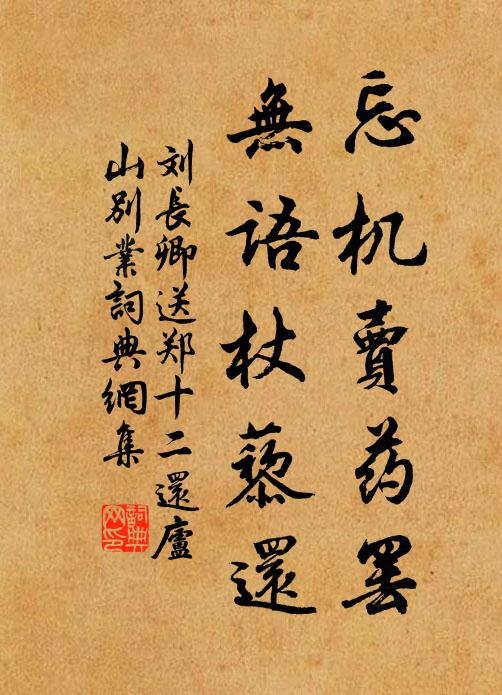 忘机賣药罢
無語杖藜還
刘長卿送郑十二還廬
山别業詞典網集